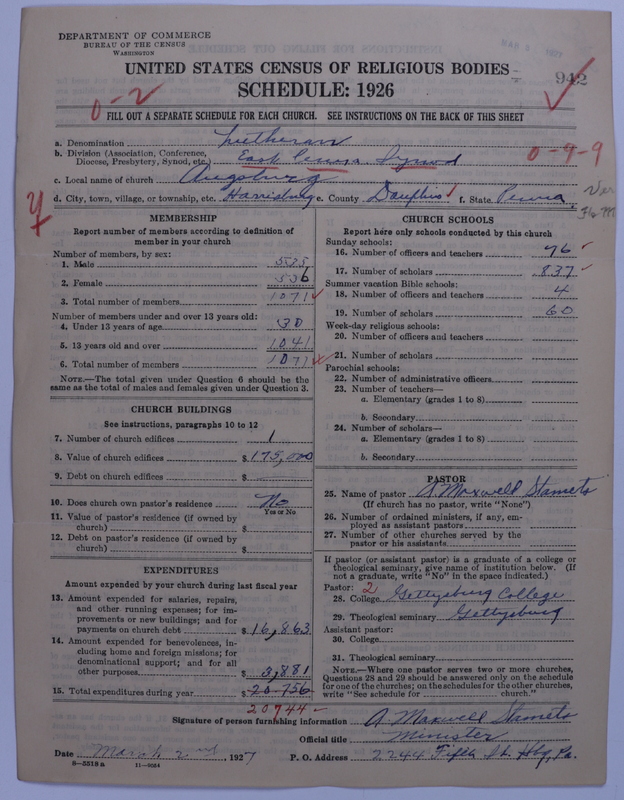 DEPARTMENT OF COMMERCE
BUREAU OF THE CENSUS
WASHINGTON
942
UNITED STATES CENSUS OF RELIGIOUS BODIES
SCHEDULE: 1926
0-2
FILL OUT A SEPARATE SCHEDULE FOR EACH CHURCH. SEE INSTRUCTIONS ON THE BACK OF THIS SHEET
a. Denomination Lutheran
b. Division (Association, Conference, Diocese, Presbytery, Synod, etc.) East Penna Synod 0-9-9
c. Local name of church Augsburg
d. City, town, village, or township, etc. Harrisburg e. County Dauphin f. State Penna
MEMBERSHIP
Report number of members according to definition of
member in your church
Number of members, by sex:
1. Male 535
2. Female 536
3. Total number of members 1071
Number of members under and over 13 years old:
4. Under 13 years of age 30
5. 13 years old and over 1041
6. Total number of members 1071
NOTE.—The total given under Question 6 should be the
same as the total of males and females given under Question 3.
CHURCH BUILDINGS
See instructions, paragraphs 10 to 12
7. Number of church edifices 1
8. Value of church edifices $175,000
9. Debt on church edifices $
10. Does church own pastor's residence No
Yes or No
11. Value of pastor's residence (if owned by
church) $
12. Debt on pastor's residence (if owned by
church) $
EXPENDITURES
Amount expended by your church during last fiscal year
13. Amount expended for salaries, repairs,
and other running expenses; for im-
provements or new buildings; and for
payments on church debt $16,863
14. Amount expended for benevolences, in-
cluding home and foreign missions; for
denominational support; and for all
other purposes $3,881
15. Total expenditures during year $20-756
20744
CHURCH SCHOOLS
Report here only schools conducted by this church
Sunday schools:
16. Number of officers and teachers 76
17. Number of scholars 837
Summer vacation Bible schools:
18. Number of officers and teachers 4
19. Number of scholars 60
Week-day religious schools:
20. Number of officers and teachers
21. Number of scholars
Parochial schools:
22. Number of administrative officers
23. Number of teachers—
a. Elementary (grades 1 to 8)
b. Secondary
24. Number of scholars—
a. Elementary (grades 1 to 8)
b. Secondary
PASTOR
25. Name of pastor A Maxwell Stamets
(If church has no pastor, write "None")
26. Number of ordained ministers, if any, em-
ployed as assistant pastors
27. Number of other churches served by the
pastor or his assistants
If pastor (or assistant pastor) is a graduate of a college or
theological seminary, give name of institution below. (If
not a graduate, write "No" in the space indicated.)
Pastor: 2
28. College Gettysburg College
29. Theological seminary Gettysburg
Assistant pastor:
30. College
31. Theological seminary
NOTE.—Where one pastor serves two or more churches,
Questions 28 and 29 should be answered only on the schedule
for one of the churches; on the schedules for the other churches,
write "See schedule for church."
Signature of person furnishing information A. Maxwell Stamets
Official title Minister
Date March 2nd, 1927 P. O. Address 2244 Fifth St. Hbg, Pa.
8—5518a 11—9064